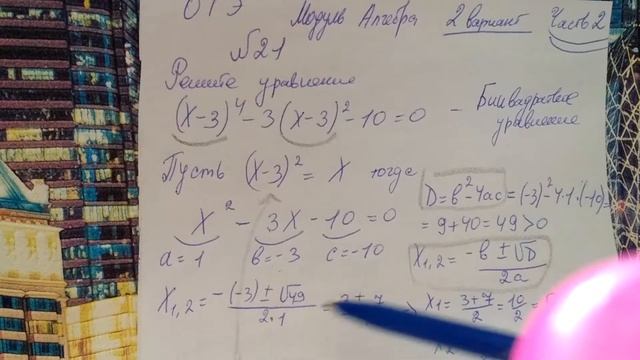 ОГЭ Модуль Алгебра 2 вариант Часть 2
№21
Решите уравнение
(x-3)⁴-3(x-3)²-10=0 - Биквадратное уравнение
Пусть (x-3)²=X тогда
X²-3X-10=0
a=1 b=-3 c=-10
X₁,₂=-(-3)±√49/2·1
D=b²-4ac=(-3)²-4·1·(-10)=
=9+40=49>0
X₁,₂=-b±√D/2a
X₁=3+7/2=10/2=